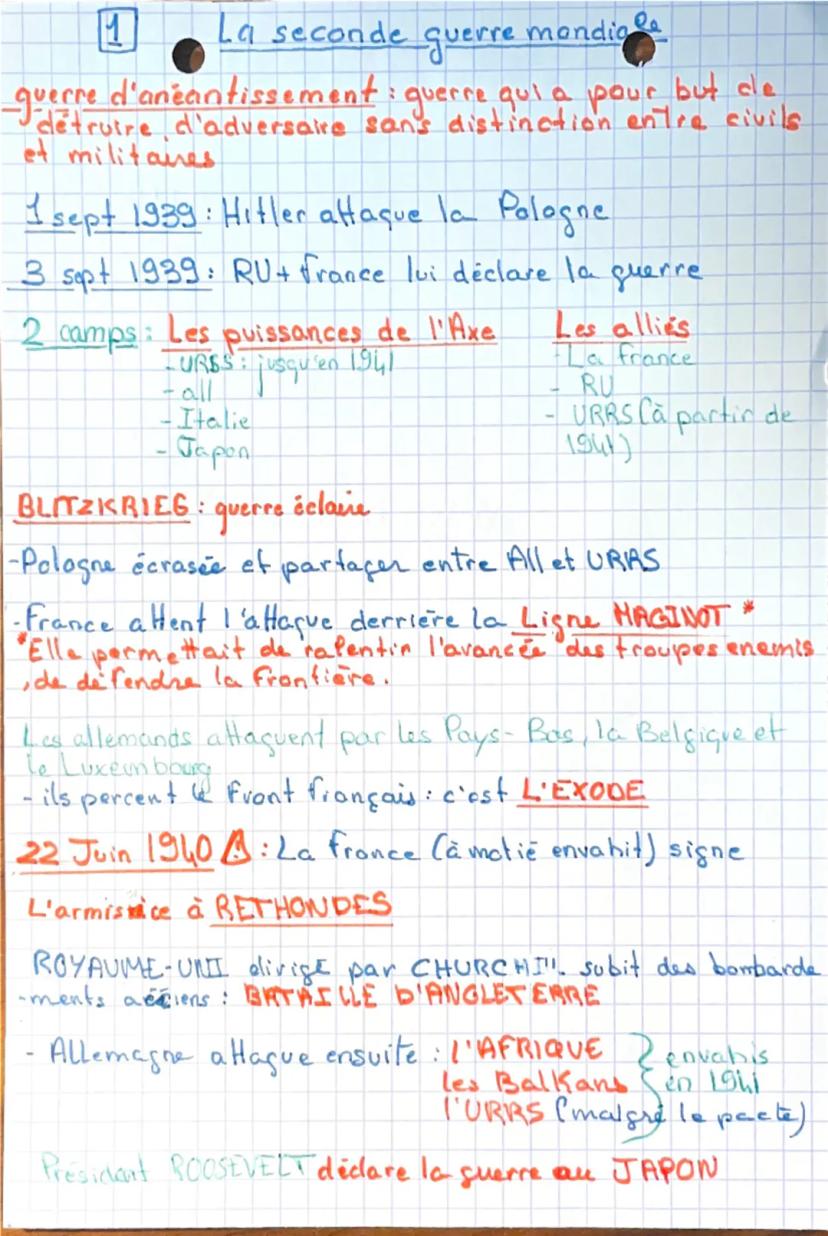 1 La seconde guerre mondiale
guerre d'anéantissement : guerre qui a pour but de
détruire d'adversaire sans distinction entre civils
et militaires
1 sept 1939 : Hitler attaque la Pologne
3 sept 1939 : RU + france lui déclare la guerre
2 camps : Les puissances de l'Axe Les alliés
- URSS : jusqu'en 1941 - La france
- all - RU
- Italie - URRS (à partir de
- Japon 1941)
BLITZKRIEG : guerre éclaire
- Pologne écrasée et partager entre All et URRS
- France attent l'attaque derrière la Ligne MAGINOT *
* Elle permettait de ralentir l'avancée des troupes enemis
, de défendre la frontière.
Les allemands attaquent par les Pays-Bas, la Belgique et
le Luxembourg
- ils percent le front français : c'est L'EXODE
22 Juin 1940 : La france (à motié envahit) signe
L'armistice à RETHONDES
ROYAUME-UNI dirigé par CHURCHILL subit des bombarde
-ments aériens : BATAILLE D'ANGLETERRE
- Allemagne attaque ensuite : l'AFRIQUE } envahis
les Balkans } en 1941
l'URRS (malgré le pacte)
Président ROOSEVELT déclare la guerre au JAPON